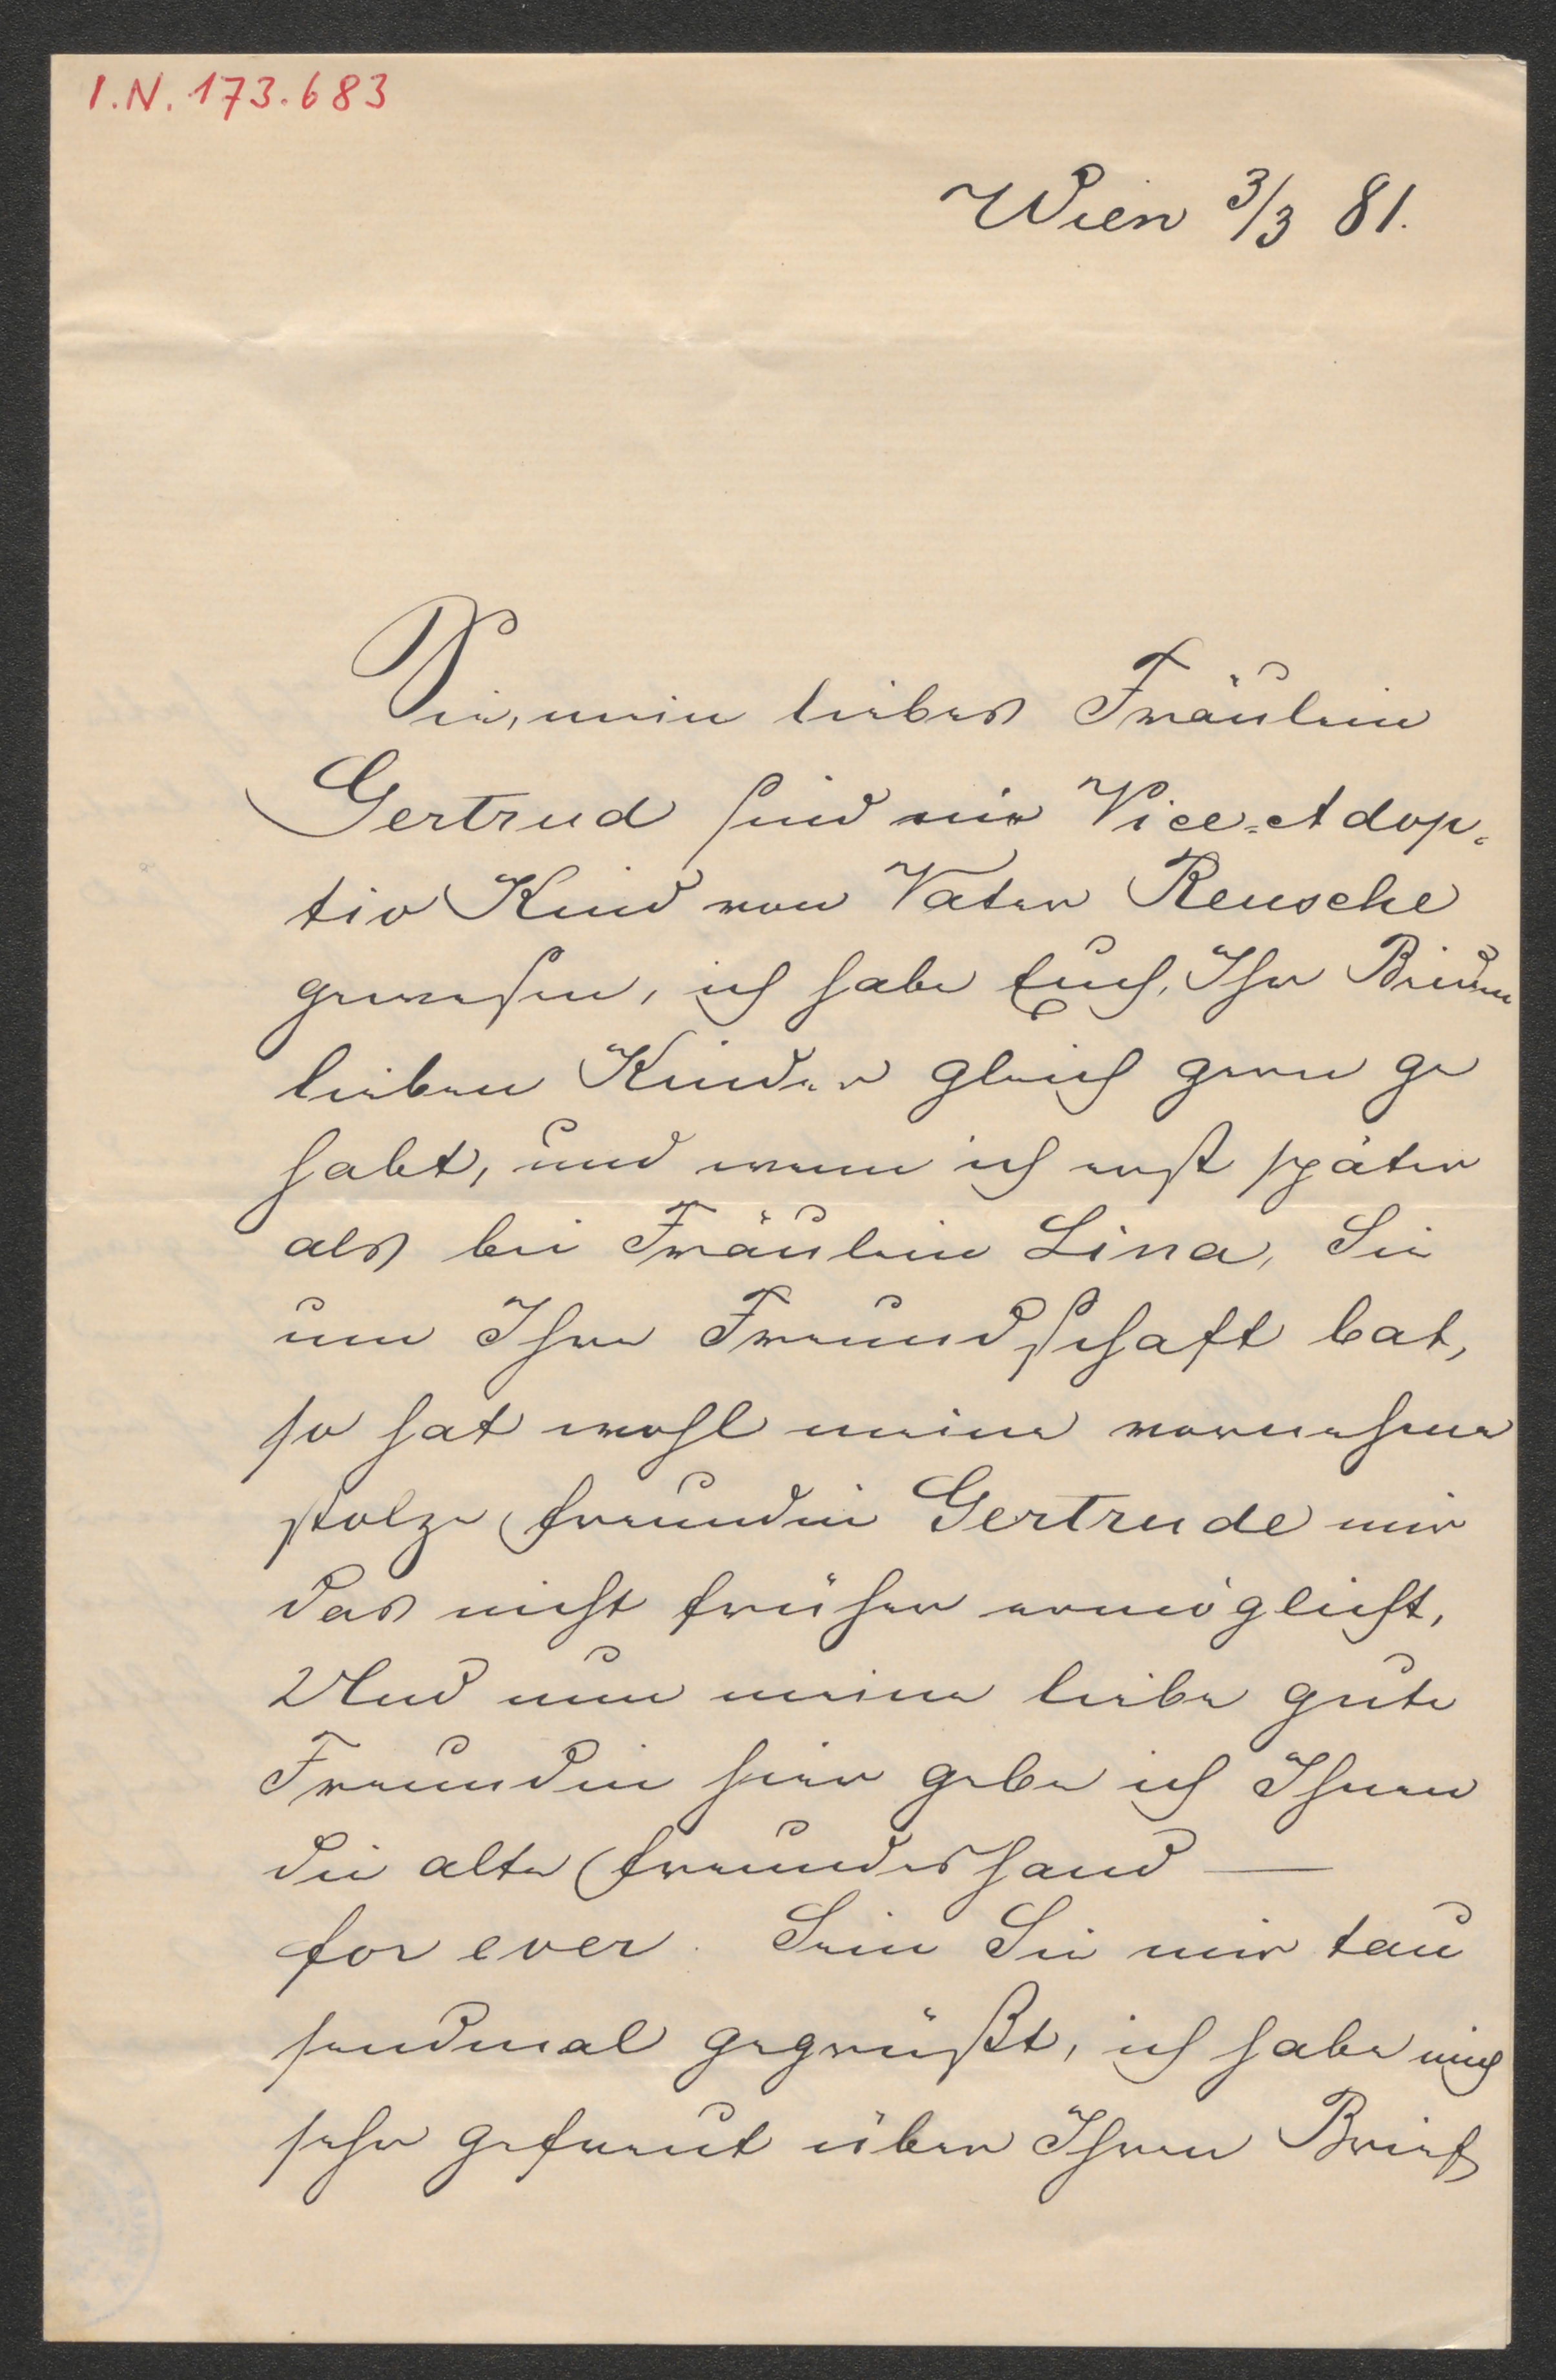 I.N. 173.683
Wien 3/3 81.
Sie, mein liebes Fräulein
Gertrud sind mir Vice=Adop=
tiv Kind von Vater Reusche
gewesen, ich habe Euch, Ihr Beiden
lieben Kinder gleich gern ge
habt, und wenn ich erst später
als bei Fräulein Lina, Sie
um Ihre Freundschaft bat,
so hat wohl meine vornehme
stolze Freundin Gertrude mir
das nicht früher ermöglicht,
Und nun meine liebe gute
Freundin hier gebe ich Ihnen
die alte Freundeshand —
for ever. Sein Sie mir tau
sendmal gegrüßt, ich habe mich
sehr gefreut über Ihren Brief